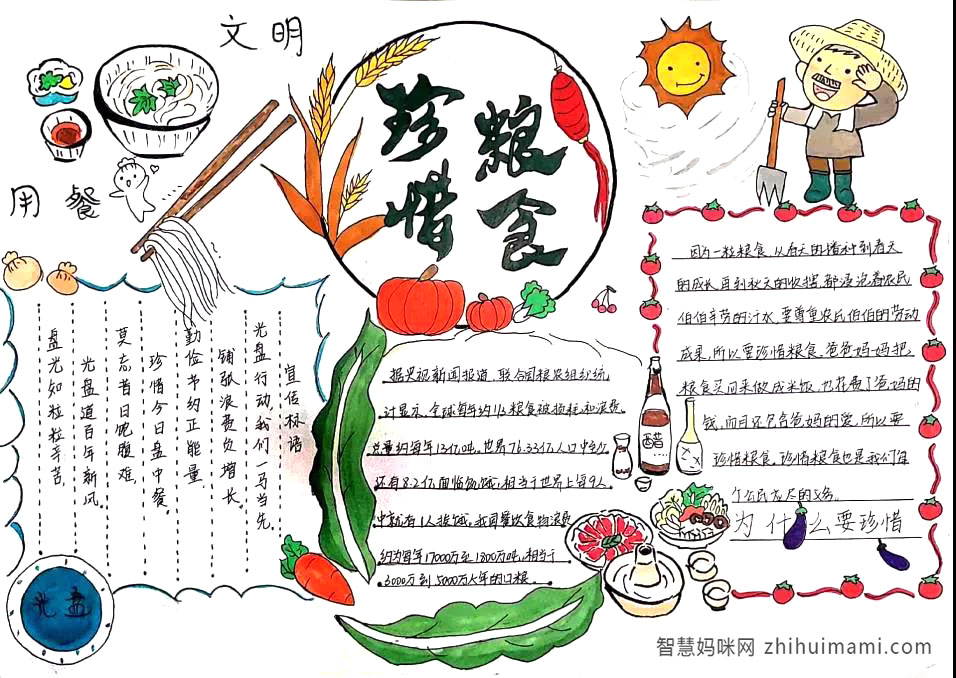 文明
用餐
珍惜
粮食
宣传标语
光盘行动,我们一马当先。
铺张浪费负增长
勤俭节约正能量
珍惜今日盘中餐
莫忘昔日饱腹难
光盘道百年新风
盘光如粒粒辛苦
光盘
据央视新闻报道,联合国粮农组织统
计显示,全球每年约1/3粮食被损耗和浪费。
总量约每年13亿吨。世界76.33亿人口中至少
还有8.2亿面临饥饿,相当于世界上每9人
中就有1人挨饿。我国餐饮食物浪费
约为每年17000万至1800万吨,相当于
3000万到5000万人年的口粮。
醋
因为一粒粮食,从春天的播种到夏天
的成长再到秋天的收搭,都浸泡着农民
伯伯辛劳的汗水,要尊重农民伯伯的劳动
成果,所以要珍惜粮食。爸爸妈妈把
粮食买回来做成米饭,也花费了爸妈的
钱,而且还包含爸妈的爱,所以要
珍惜粮食。珍惜粮食也是我们每
个公民应尽的义务。
为什么要珍惜
智慧妈咪网 zhihuimami.com